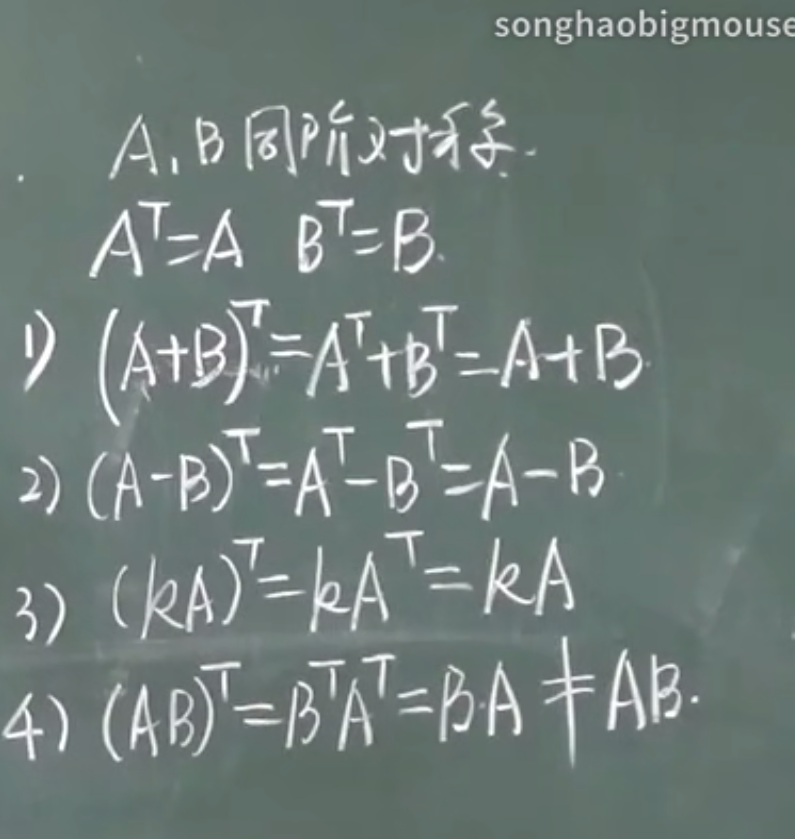 songhaobigmouse
A, B 同阶对称.
Aᵀ=A Bᵀ=B.
1) (A+B)ᵀ=Aᵀ+Bᵀ=A+B.
2) (A-B)ᵀ=Aᵀ-Bᵀ=A-B.
3) (kA)ᵀ=kAᵀ=kA
4) (AB)ᵀ=BᵀAᵀ=B·A≠AB.